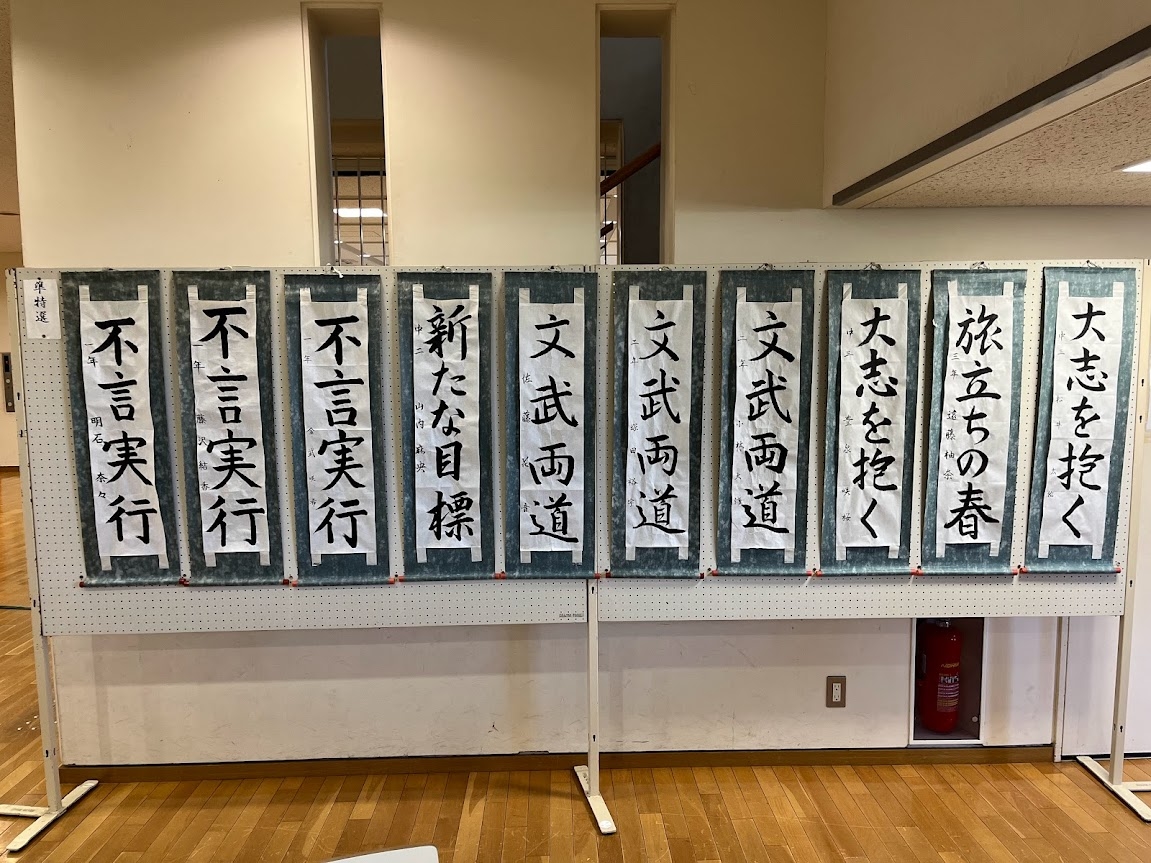 大志を抱く
旅立ちの春
三年 遠藤柚奈
大志を抱く
中三
文武両道
文武両道
二年
文武両道
佐藤
新たな目標
中二 山内
不言実行
年
不言実行
年 藤沢結香
不言実行
一年 明石 奈々
準特選